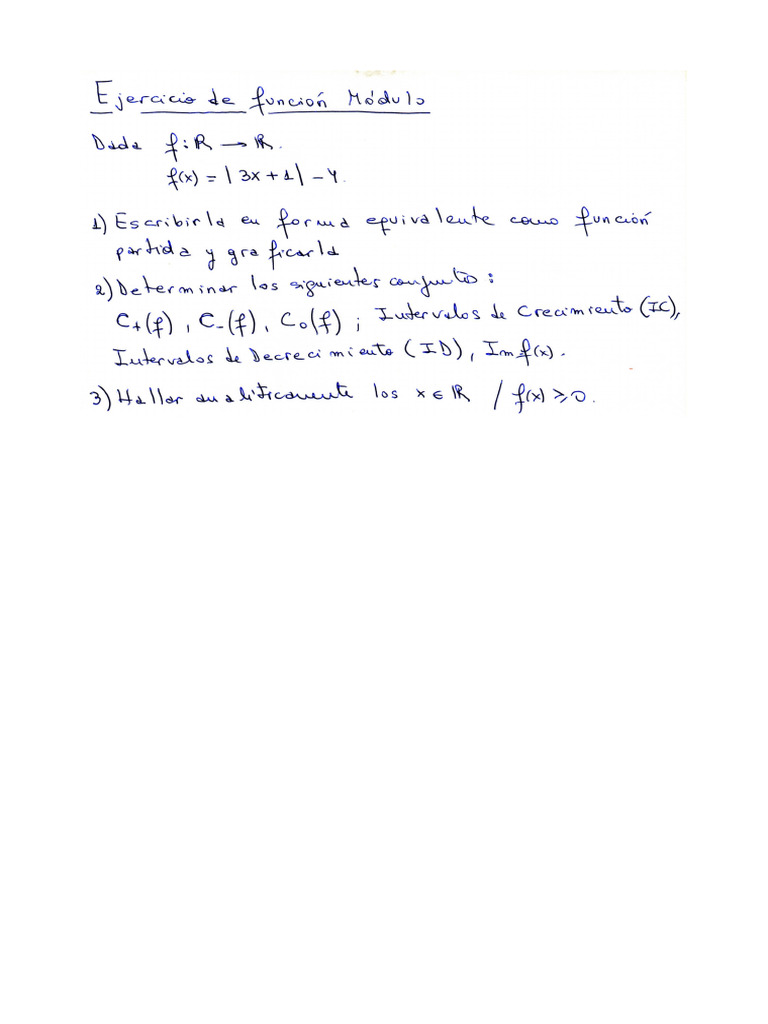 Ejercicio de función Módulo
Dada f: ℝ → ℝ.
f(x) = |3x + 1| - 4.
1) Escribirla en forma equivalente como función
partida y graficarla
2) Determinar los siguientes conjuntos:
C₊(f), C₋(f), C₀(f); Intervalos de Crecimiento (IC),
Intervalos de Decrecimiento (ID), Im f(x).
3) Hallar analíticamente los x ∈ ℝ / f(x) ≥ 0.